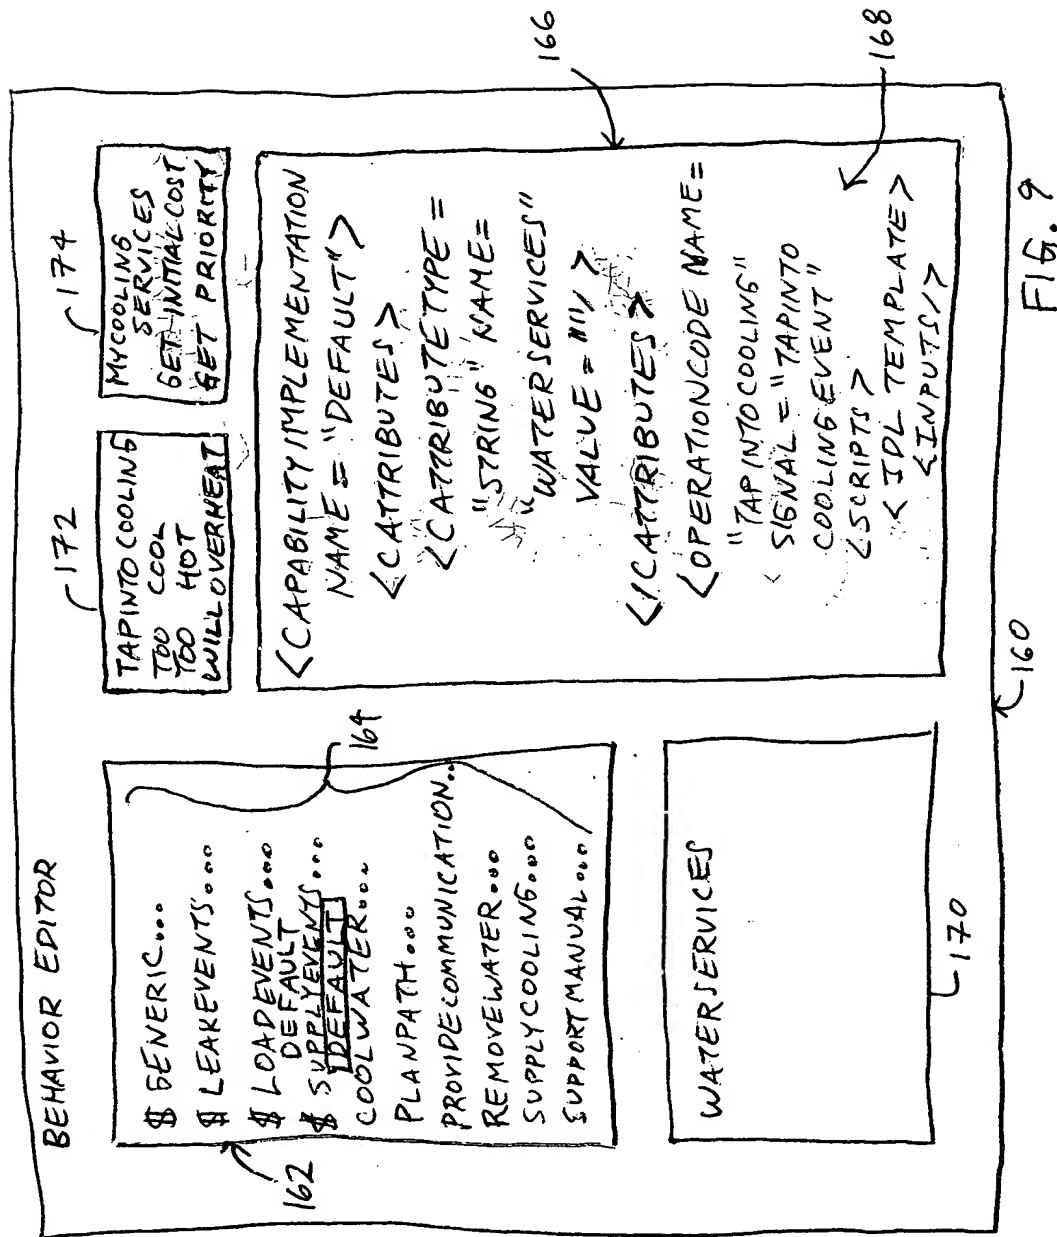 BEHAVIOR EDITOR
$ GENERIC...
$ LEAKEVENTS...
$ LOADEVENTS...
DEFAULT
$ SUPPLYEVENTS...
DEFAULT
COOLWATER...
PLANPATH...
PROVIDECOMMUNICATION...
REMOVEWATER...
SUPPLYCOOLING...
SUPPORTMANUAL...
162
164
WATERSERVICES
170
TAPINTOCOOLING
TOO COOL
TOO HOT
WILLOVERHEAT
172
MYCOOLING
SERVICES
GET INITIAL COST
GET PRIORITY
174
<CAPABILITYIMPLEMENTATION
NAME = "DEFAULT">
<CATTRIBUTES>
<CATTRIBUTETYPE =
"STRING" NAME=
"WATERSERVICES"
VALUE = ""/>
</CATTRIBUTES>
<OPERATIONCODE NAME=
"TAPINTOCOOLING"
SIGNAL = "TAPINTO
COOLINGEVENT"
<SCRIPTS>
<IDL TEMPLATE>
<INPUTS/>
166
168
160
FIG. 9